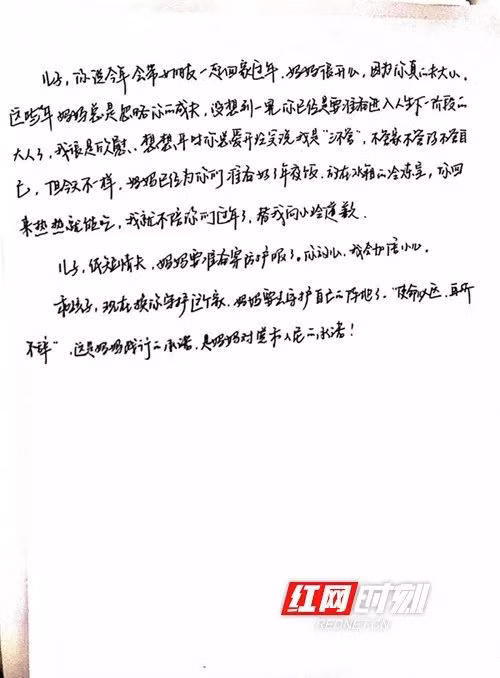 儿子，你说今年会带女朋友一起回家过年，妈妈很开心，因为你真的长大了。
这些年妈妈总是忽略你的成长，没想到一晃你已经是要准备进入人生下一阶段的
大人了，我很是欣慰。想想平时你总爱开玩笑说我是“三不管”，不管家不管你不管自
己，但今天不一样，妈妈已经为你们准备好了年夜饭，放在冰箱的冷冻室，你回
来热热就能吃，我就不陪你们过年了，替我向小冷道歉。
儿子，纸短情长，妈妈要准备穿防护服了。你放心，我会加倍小心。
乖孩子，现在换你守护这个家，妈妈要去守护自己的阵地了。“使命必达，在所
不辞”，这是妈妈践行的承诺，是妈妈对党和人民的承诺！
红网时刻
REDNET.CN